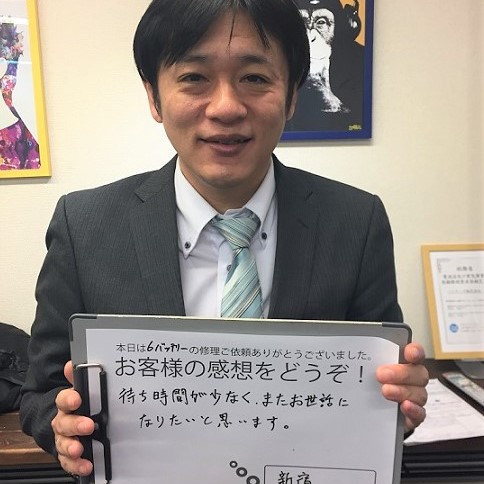 本日は6バッテリーの修理ご依頼ありがとうございました。
お客様の感想をどうぞ！
待ち時間が少なく、またお世話に
なりたいと思います。
新宿